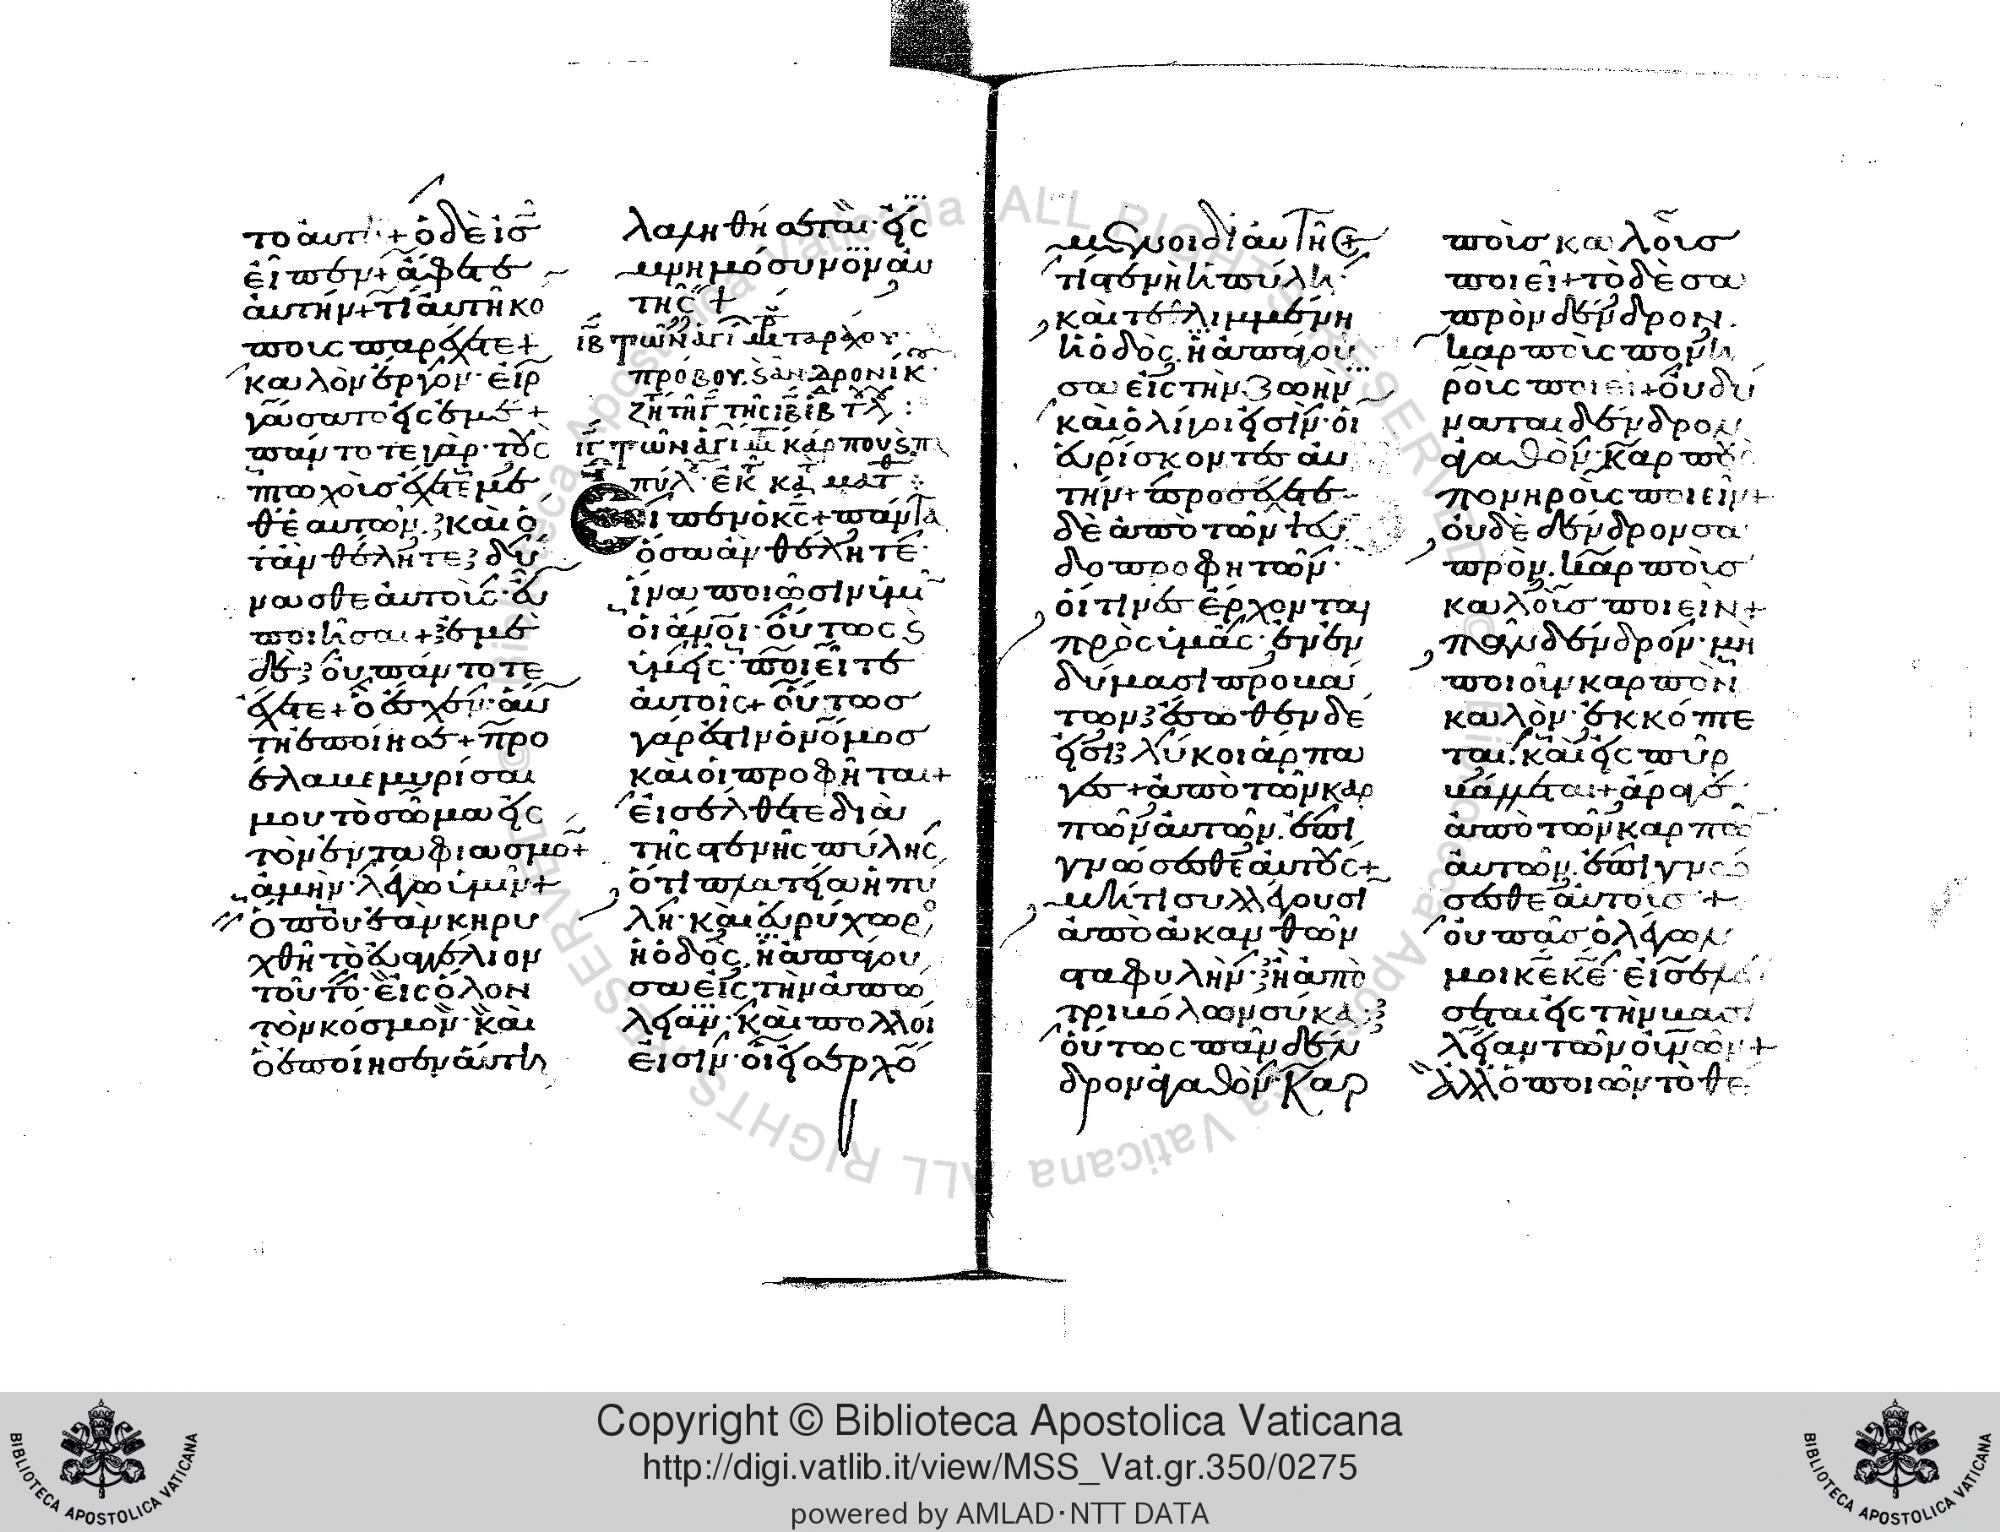 το αυτῆ + ὁ δὲ ις
εἶπεν + ἄφετε
αὐτήν + τί αὐτῆ κό
πους παρέχετε +
καλὸν ἔργον εἰρ
γάσατο εἰς ἐμέ +
πάντοτε γὰρ τοὺς
πτωχοὺς ἔχετε με
θ' ἑαυτῶν, καὶ ὅ
ταν θέλητε, δύ
νασθε αὐτοὺς εὖ
ποιῆσαι + ἐμὲ
δὲ, οὐ πάντοτε
ἔχετε + ὃ ἔσχεν αὕ
τη ἐποίησε + προ
έλαβε μυρίσαι
μου τὸ σῶμα εἰς
τὸν ἐνταφιασμὸν +
ἀμὴν λέγω ὑμῖν +
ὅπου ἐὰν κηρυ
χθῆ τὸ εὐαγγέλιον
τοῦτο εἰς ὅλον
τὸν κόσμον καὶ
ὃ ἐποίησεν αὕτη
λαληθήσεται εἰς
μνημόσυνον αὐ
τῆς +
ιβ τῶν ἁγί μτ ταράχου
πρόβου. ϛ ἀνδρονίκ
ιγ τῶν ἁγί μτ κάρπου ϛ πα
πύλ ἐκ κατ ματθ
Εἶπεν ὁ κς + πάντα
ὅσα ἂν θέλητε
ἵνα ποιῶσιν ὑμῖν
οἱ ἄνοι οὕτως ϛ
ὑμεῖς ποιεῖτε
αὐτοῖς + οὕτως
γάρ ἐστιν ὁ νόμος
καὶ οἱ προφῆται +
εἰσέλθετε διὰ
τῆς στενῆς πύλης
ὅτι πλατεῖα ἡ πύ
λη καὶ εὐρύχωρο
ἡ ὁδὸς ἡ ἀπάγου
σα εἰς τὴν ἀπώ
λειαν καὶ πολλοί
εἰσιν οἱ εἰσερχό
μενοι δι' αὐτῆς +
τί στενὴ ἡ πύλη
καὶ τεθλιμμένη
ἡ ὁδὸς ἡ ἀπάγου
σα εἰς τὴν ζωὴν
καὶ ὀλίγοι εἰσὶν οἱ
εὑρίσκοντες αὐ
τήν + προσέχετε
δὲ ἀπὸ τῶν ψευ
δοπροφητῶν
οἵτινες ἔρχονται
πρὸς ὑμᾶς ἐν ἐν
δύμασι προβά
των, ἔσωθεν δέ
εἰσι, λύκοι ἅρπα
γες + ἀπὸ τῶν καρ
πῶν αὐτῶν ἐπι
γνώσεσθε αὐτούς +
μήτι συλλέγουσι
ἀπὸ ἀκανθῶν
σταφυλὴν, ἢ ἀπὸ
τριβόλων σύκα,
οὕτως πᾶν δέν
δρον ἀγαθὸν καρ
ποὺς καλοὺς
ποιεῖ + τὸ δὲ σα
πρὸν δένδρον
καρποὺς πονη
ροὺς ποιεῖ + οὐ δύ
ναται δένδρον
ἀγαθὸν καρποὺς
πονηροὺς ποιεῖν +
οὐδὲ δένδρον σα
πρὸν καρποὺς
καλοὺς ποιεῖν +
πᾶν δένδρον μὴ
ποιοῦν καρπὸν
καλὸν ἐκκόπτε
ται καὶ εἰς πῦρ
βάλλεται + ἄραγε
ἀπὸ τῶν καρπῶ
αὐτῶν ἐπιγνώ
σεσθε αὐτούς +
οὐ πᾶς ὁ λέγων
μοι κε κε εἰσελεύ
σεται εἰς τὴν βασι
λείαν τῶν οὐνῶν +
ἀλλ' ὁ ποιῶν τὸ θέ